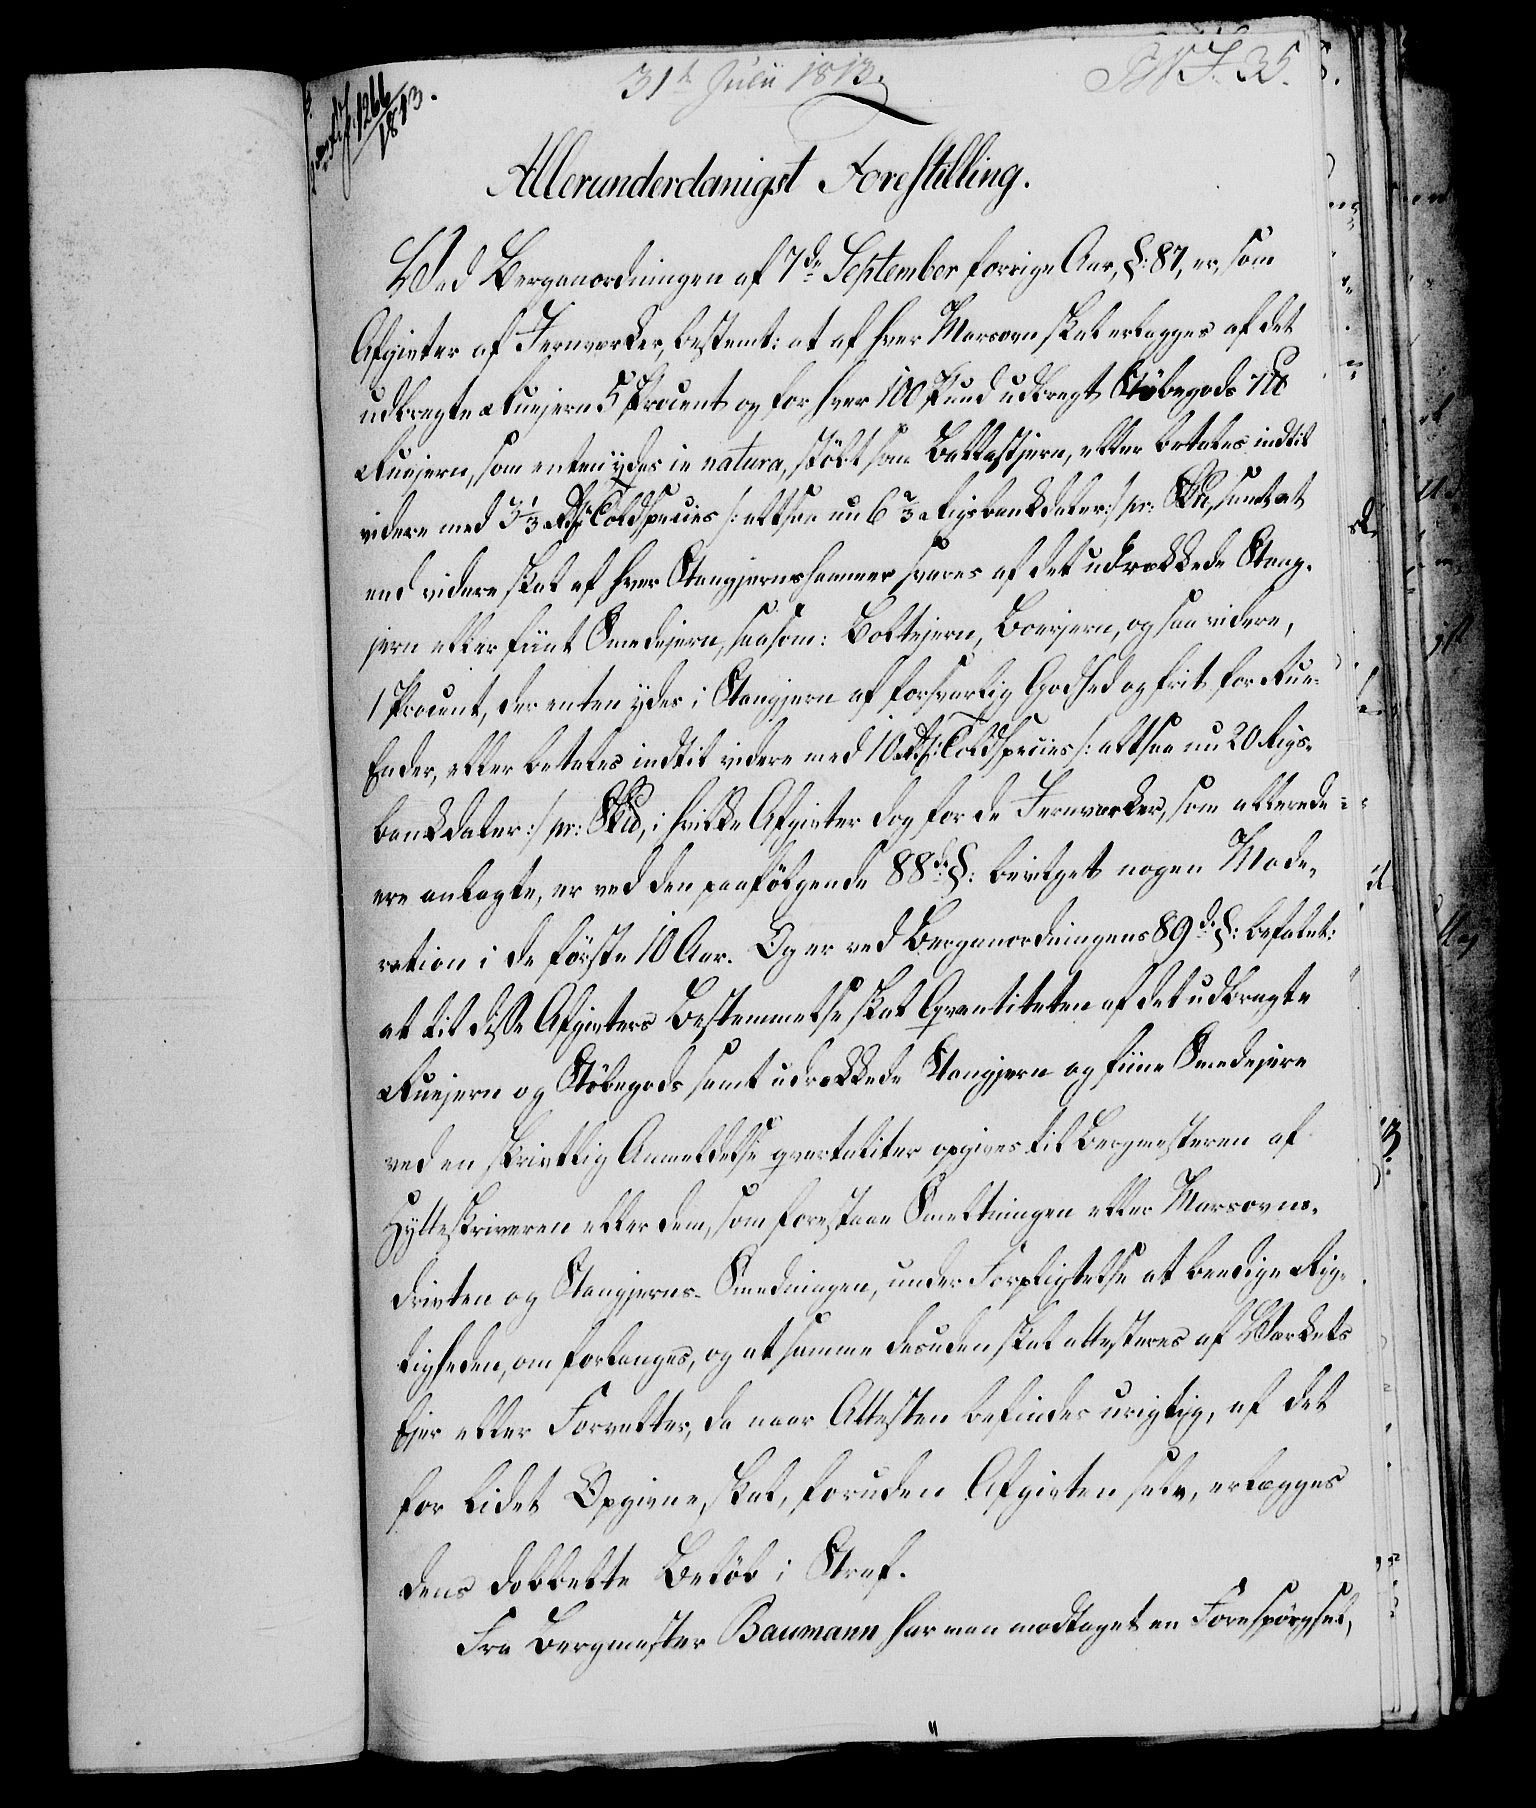 31te Julii 1813.
No. 35.
1266
1813.
Allerunderdanigst Forestilling.
Ved Berganordningen af 7de September forrige Aar, §: 87, er, som
Afgivter af Jernværker, bestemt: at af hver Marsovn skal erlægges af det
udbragte Ruejern 5 Procent og for hver 100 Pund udbragt Stöbegods 7 ℔
Ruejern, som enten ydes in natura, stöbt som Ballastjern, eller betales indtil
videre med 3⅓ Rdl. Toldspecies /: altsaa nu 6⅔ Rigsbankdaler:/ pr: Sk℔, samt at
end videre skal af hver Stangjernshammer svares af det udrakkede Stang-
jern eller fiint Smedejern, saasom: Boltejern, Baarjern, og saa videre,
1 Procent, der enten ydes i Stangjern af forsvarlig Godhed og frit for Rue-
Ender, eller betales indtil videre med 10 Rdl: Toldspecies /: altsaa nu 20 Rigs-
bankdaler:/ pr: Sk℔, i hvilke Afgivter dog for de Jernværker, som allerede
ere anlagte, er ved den paafölgende 88de §: bevilget nogen Mode-
ration i de förste 10 Aar. Og er ved Berganordningens 89de §: befalet:
at til disse Afgivters Bestemmelse skal Qvantiteten af det udbragte
Ruejern og Stöbegods samt udrakkede Stangjern og fiine Smedejern
ved en skrivtlig Anmeldelse qvartaliter opgives til Bergmesteren af
Hytteskriveren eller dem, som forestaae Smeltningen eller Marsovns-
drivten og Stangjerns-Smedningen, under Forpligtelse at beedige Rig-
tigheden, om forlanges, og at samme desuden skal attesteres af Værkets
Ejer eller Forvalter, da naar Attesten befindes urigtig, af det
for lidet Opgivne, skal, foruden Afgivten selv, erlægges
dens dobbelte Belöb i Straf.
Fra Bergmester Baumann har man modtaget en Forespörgsel,